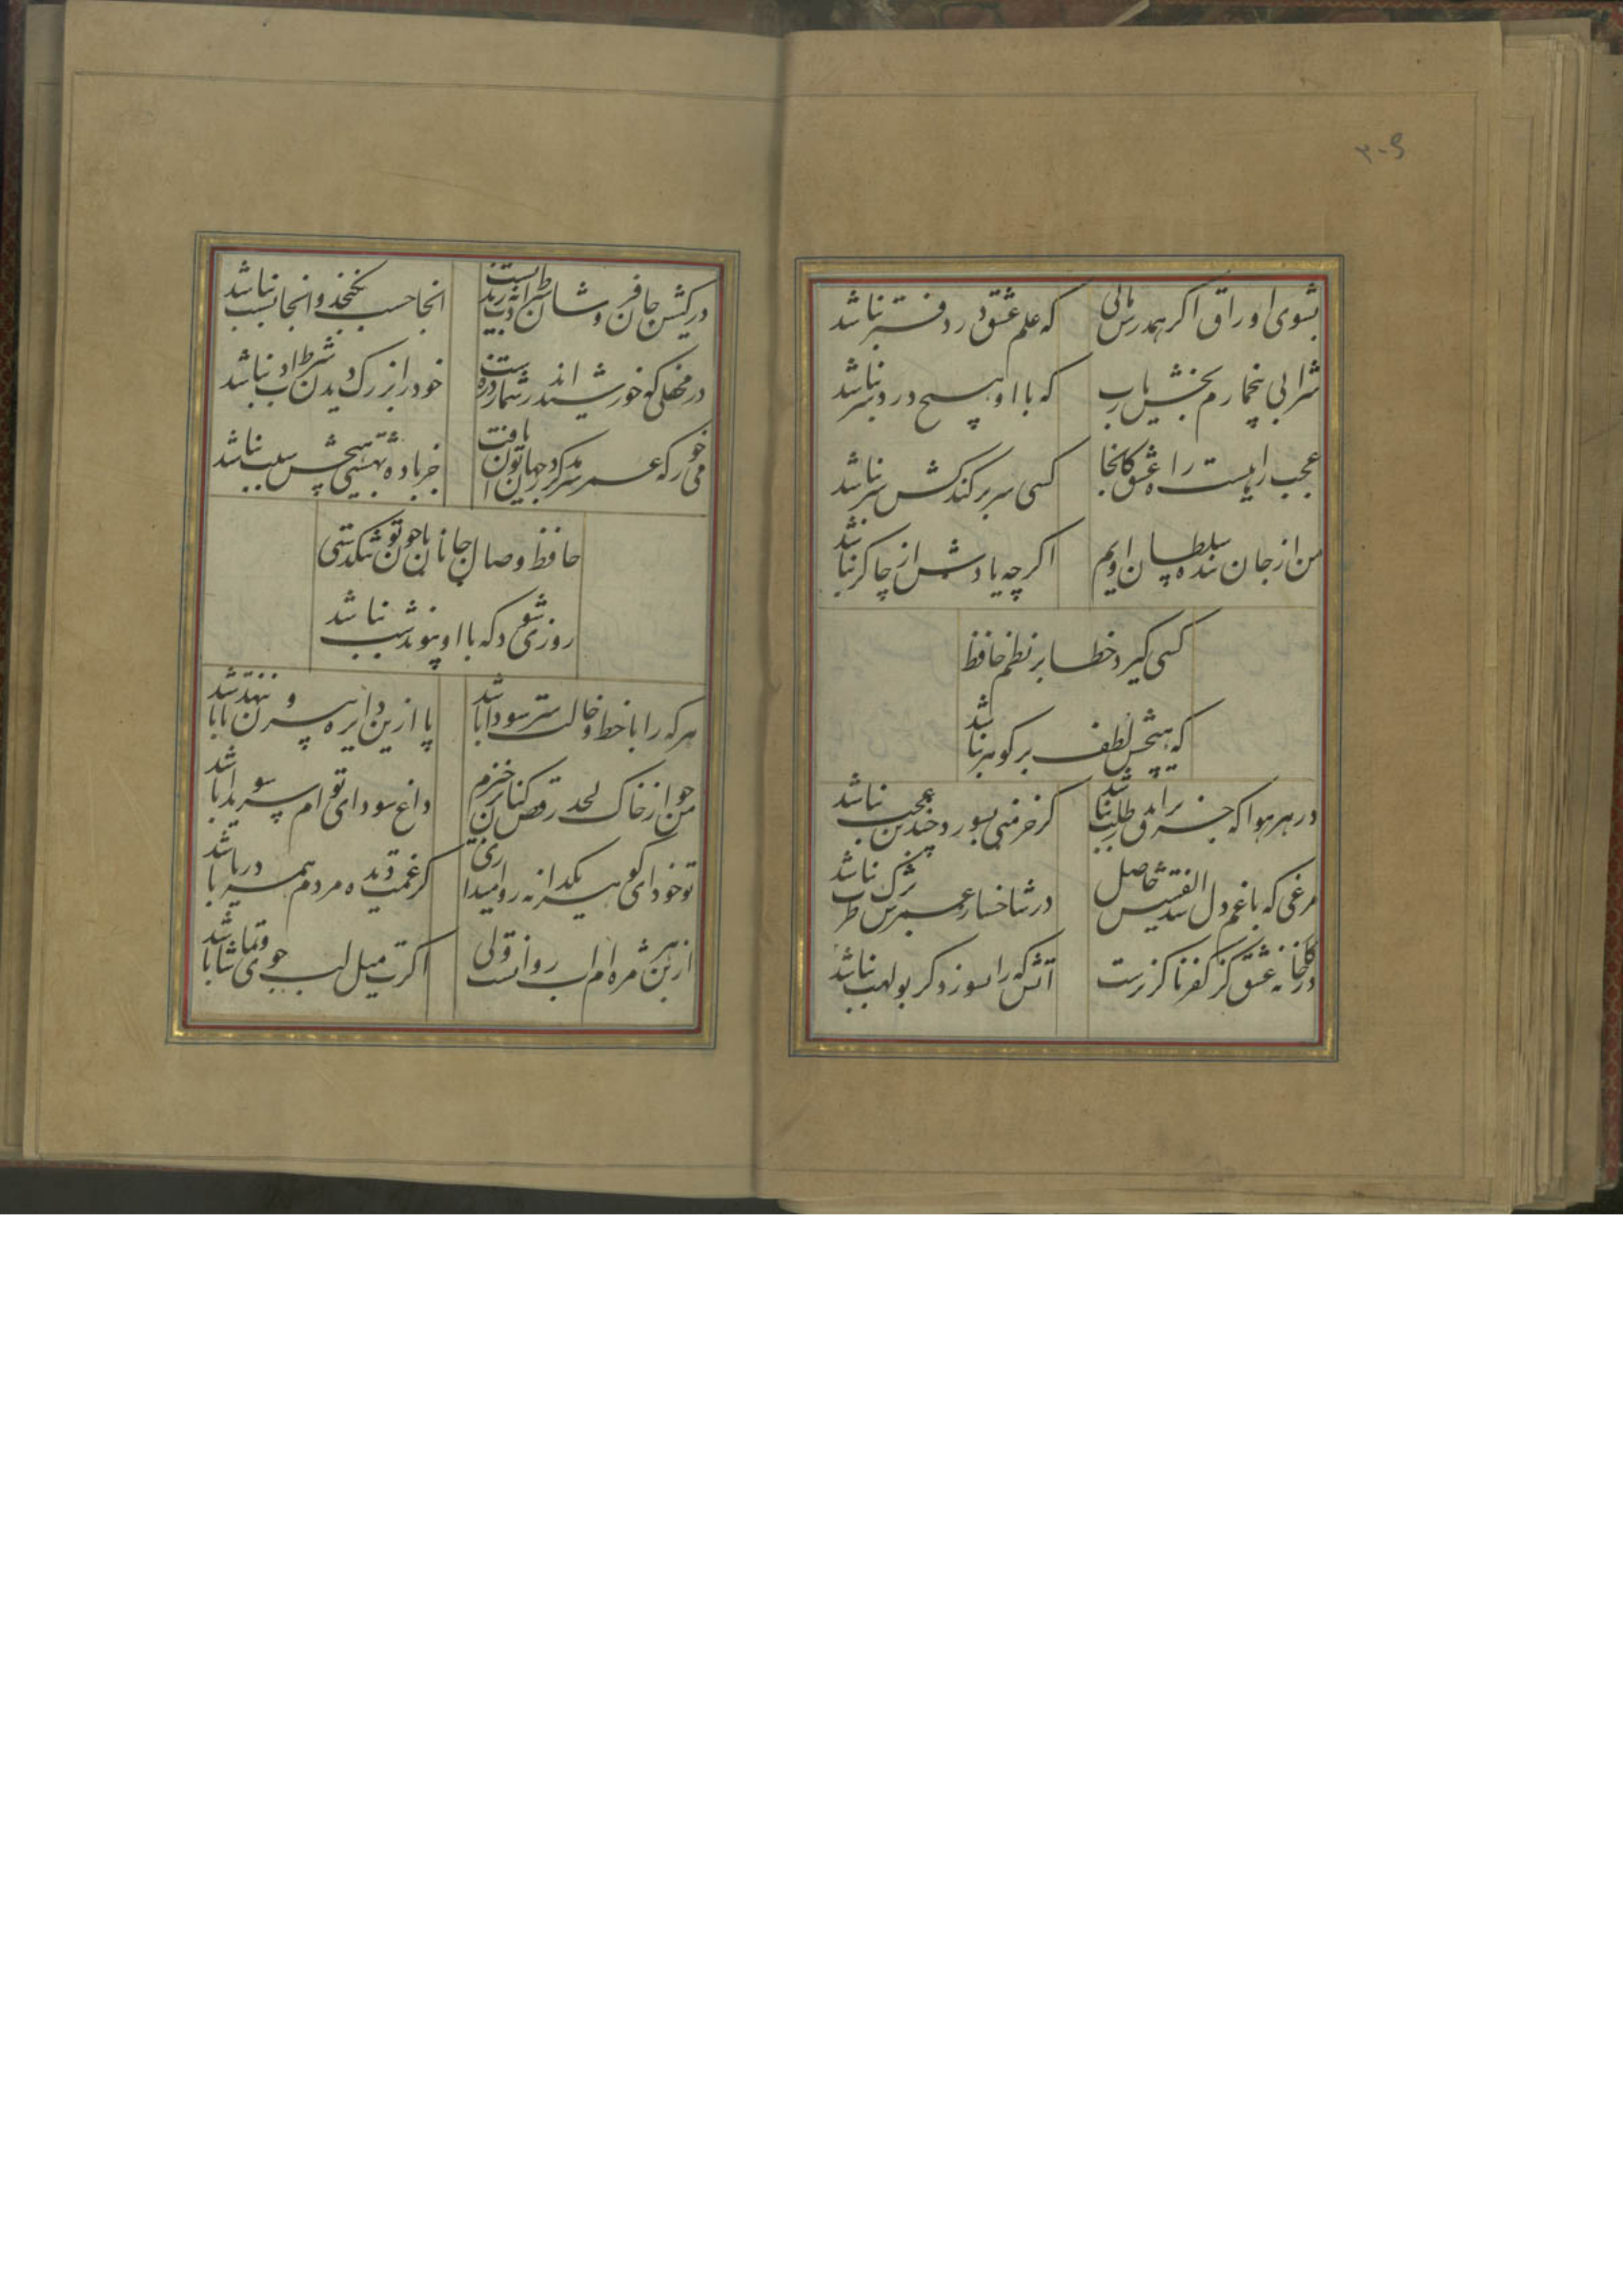 ۳۰۹
بشوی اوراق اگر همدرس مائی
که علم عشق در دفتر نباشد
شرابی بیخمارم بخش یارب
که با او هیچ درد سر نباشد
عجب راهیست راه عشق کانجا
کسی سر بر کند کش سر نباشد
من از جان بنده سلطان اویسم
اگر چه یادش از چاکر نباشد
کسی گیرد خطا بر نظم حافظ
که هیچش لطف بر گوهر نباشد
در هر هوا که جز برق اندر طلب نباشد
گر خرمنی بسوزد چندین عجب نباشد
مرغی که با غم دل شد الفتیش حاصل
در شاخسار عمرش برگ طرب نباشد
در کارخانه عشق کز کفر ناگزیرست
آتش که را بسوزد گر بولهب نباشد
در کیش جان فروشان فضل و ادب نه رندیست
انجا حسب نگنجد و انجا نسب نباشد
در محفلی که خورشید اندر شمار ذره است
خود را بزرگ دیدن شرط ادب نباشد
می خور که عمر سرمد گر در جهان توان یافت
جز باده بهشتی هیچش سبب نباشد
حافظ وصال جانان با چون تو تنگدستی
روزی شود که با او پیوند شب نباشد
هر که را با خط و خالت سر سودا باشد
پا ازین دایره بیرون ننهد تا باشد
من چو از خاک لحد رقص کنان برخیزم
داغ سودای توام سر سویدا باشد
تو خود ای گوهر یکدانه روا میداری
کز غمت دیده مردم همه دریا باشد
از بن هر مژه ام اب روانست ولی
اگرت میل لب جوی و تماشا باشد